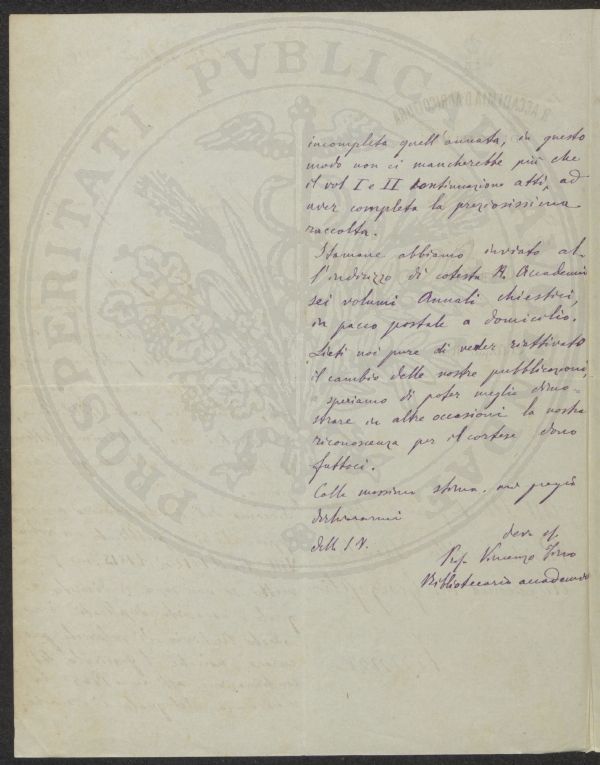 PROSPERITATI PVBLICAE
incompleta quell'annata, in questo
modo non ci mancherebbe più che
il vol I e II continuazione atti, ad
aver completa la preziosissima
raccolta.
Stamane abbiamo inviato al-
l'indirizzo di cotesta R. Accademia
sei volumi Annali chiestici,
in pacco postale a domicilio.
Lieti noi pure di veder riattivato
il cambio delle nostre pubblicazioni,
speriamo di poter meglio dimo-
strare in altre occasioni la nostra
riconoscenza per il cortese dono
fattoci.
Colla massima stima, mi pregio
dichiararmi
della S.V.
dev
Prof. Vincenzo
Bibliotecario accademico